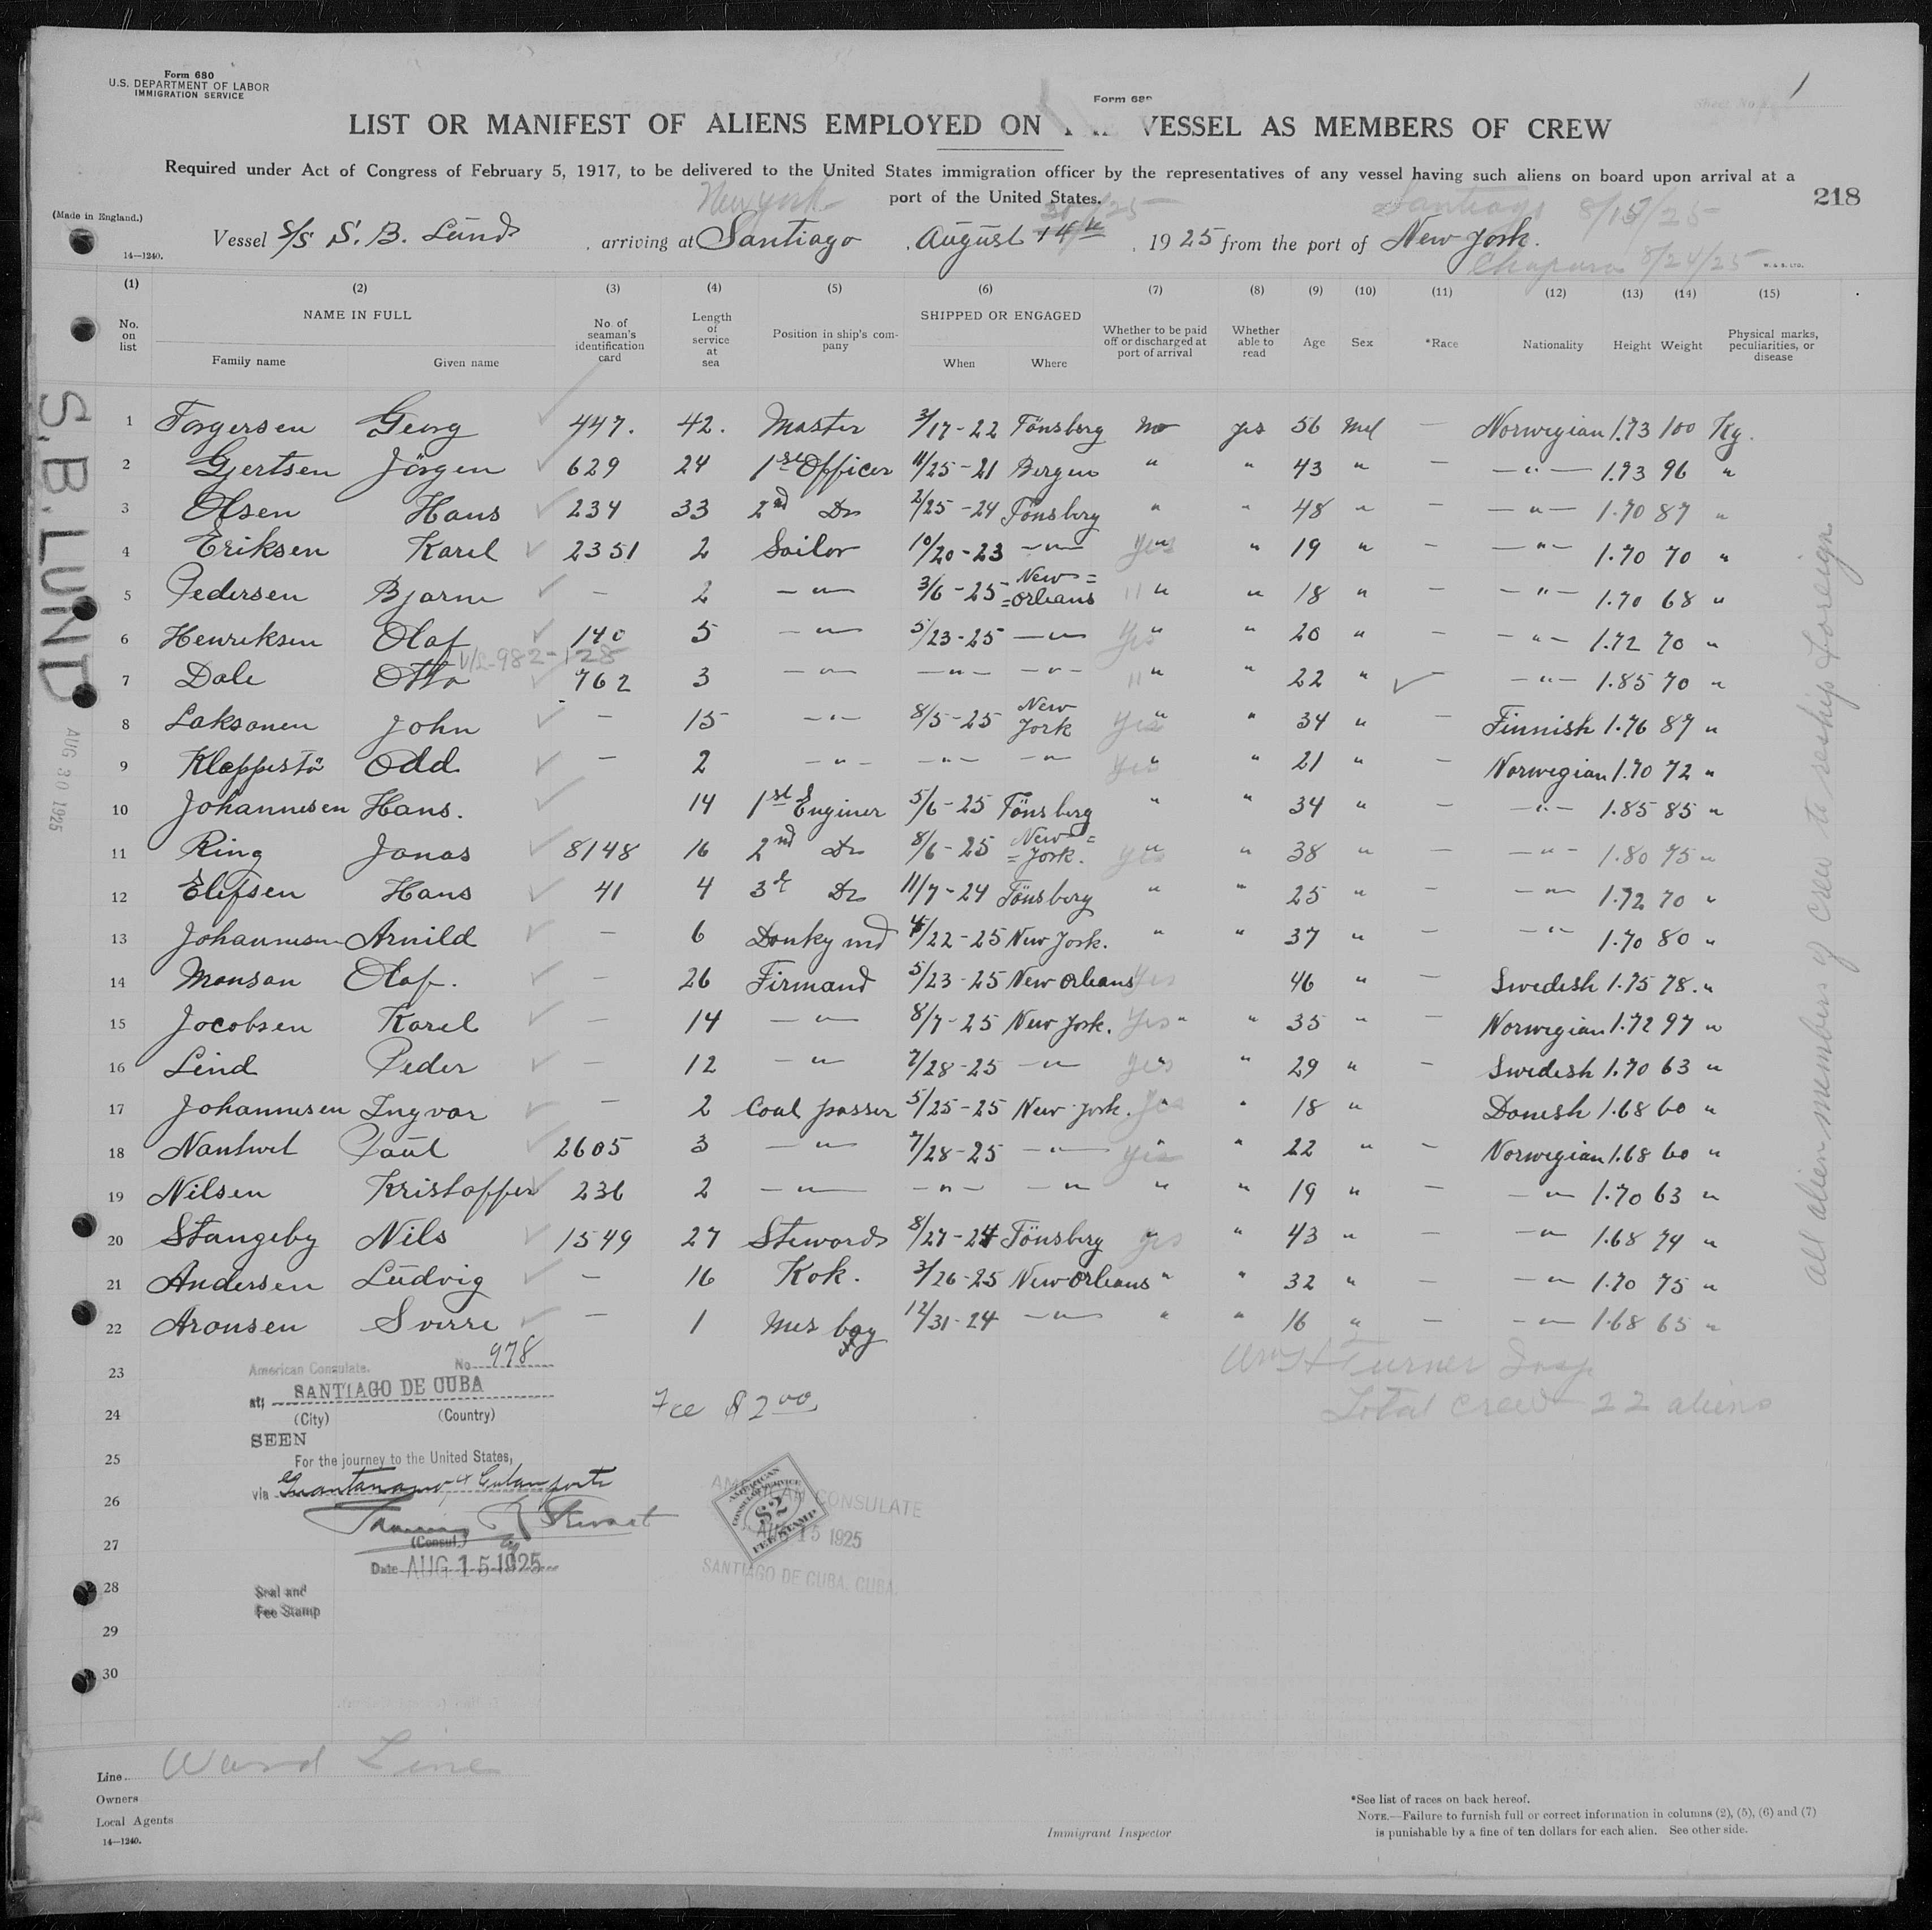 Form 680
U.S. DEPARTMENT OF LABOR
IMMIGRATION SERVICE
1
Form 680
LIST OR MANIFEST OF ALIENS EMPLOYED ON VESSEL AS MEMBERS OF CREW
Required under Act of Congress of February 5, 1917, to be delivered to the United States immigration officer by the representatives of any vessel having such aliens on board upon arrival at a
port of the United States.
218
New York 30/25 Santiago 8/15/25
(Made in England.)
Vessel S/S S. B. Lund, arriving at Santiago, August 14th, 1925 from the port of New York.
Chaparra 8/24/25
14—1240.
W. & S. LTD.
(1) (2) (3) (4) (5) (6) (7) (8) (9) (10) (11) (12) (13) (14) (15)
No. on list
NAME IN FULL
Family name Given name
No. of seaman's identification card
Length of service at sea
Position in ship's company
SHIPPED OR ENGAGED
When Where
Whether to be paid off or discharged at port of arrival
Whether able to read
Age Sex *Race Nationality Height Weight
Physical marks, peculiarities, or disease
S. B. LUND
AUG 30 1925
1 Torgersen Georg 447. 42. Master 3/17-22 Tönsberg No yes 56 Mel — Norwegian 1.73 100 Kg.
2 Gjertsen Jörgen 629 24 1st Officer 11/25-21 Bergen " " 43 " — —"— 1.73 96 "
3 Olsen Hans 234 33 2nd Do 2/25-24 Tönsberg " " 48 " — —"— 1.70 87 "
4 Eriksen Karel 2351 2 Sailor 10/20-23 —"— yes " " 19 " — —"— 1.70 70 "
5 Pedersen Bjarne — 2 —"— 3/6-25 New=
=Orleans " " " 18 " — —"— 1.70 68 "
6 Henriksen Olaf 140 5 —"— 5/23-25 —"— Yes " " 20 " — —"— 1.72 70 "
V/L-982-128
7 Dale Otto 762 3 —"— —"— —"— " " " 22 " —"— 1.85 70 "
8 Laksonen John — 15 —"— 8/5-25 New
York Yes " " 34 " — Finnish 1.76 87 "
9 Kleppestö Odd — 2 —"— —"— —"— Yes " " 21 " — Norwegian 1.70 72 "
10 Johannesen Hans. 14 1st Enginer 5/6-25 Tönsberg " " 34 " — —"— 1.85 85 "
11 Ring Jonas 8148 16 2nd Do 8/6-25 New=
=York. yes " " 38 " — —"— 1.80 75 "
12 Elefsen Hans 41 4 3d Do 11/7-24 Tönsberg " " 25 " — —"— 1.72 70 "
13 Johannesen Arnild — 6 Donky md 4/22-25 New York. " " 37 " — —"— 1.70 80 "
14 Monson Olaf. — 26 Firmand 5/23-25 New Orleans Yes 46 " — Swedish 1.75 78. "
15 Jocobsen Karel — 14 —"— 8/7-25 New York. Yes " " 35 " — Norwegian 1.72 97 "
16 Lind Peder — 12 —"— 7/28-25 —"— yes " " 29 " — Swedish 1.70 63 "
17 Johannesen Ingvar — 2 Coal passer 5/25-25 New York. Yes " " 18 " Donesh 1.68 60 "
18 Nantwet Paul 2605 3 —"— 7/28-25 —"— yes " " 22 " — Norwegian 1.68 60 "
19 Nilsen Kristoffer 236 2 —"— —"— —"— " " 19 " — —"— 1.70 63 "
20 Stangeby Nils 1549 27 Stewards 8/27-24 Tönsberg yes " " 43 " — —"— 1.68 74 "
21 Andersen Ludvig — 16 Kok. 3/26-25 New Orleans " " 32 " — —"— 1.70 75 "
22 Aronsen Sverre — 1 Mes boy 12/31-24 —"— " " 16 " — —"— 1.68 65 "
All alien members of crew to reship foreign
23
24
25
26
27
28
29
30
American Consulate. No. 978
at; SANTIAGO DE CUBA
(City) (Country)
SEEN
For the journey to the United States,
via Guantanamo & Cuban ports
(Consul.)
Date AUG 15 1925
Seal and
Fee Stamp
Fee $2 00
AMERICAN CONSULATE
AMERICAN
CONSULAR SERVICE
$2
FEE STAMP
AUG 15 1925
SANTIAGO DE CUBA, CUBA.
Wm H Turner Insp
Total Crew 22 aliens
Line Ward Line
Owners
Local Agents
14—1240.
Immigrant Inspector
*See list of races on back hereof.
NOTE.—Failure to furnish full or correct information in columns (2), (5), (6) and (7)
is punishable by a fine of ten dollars for each alien. See other side.